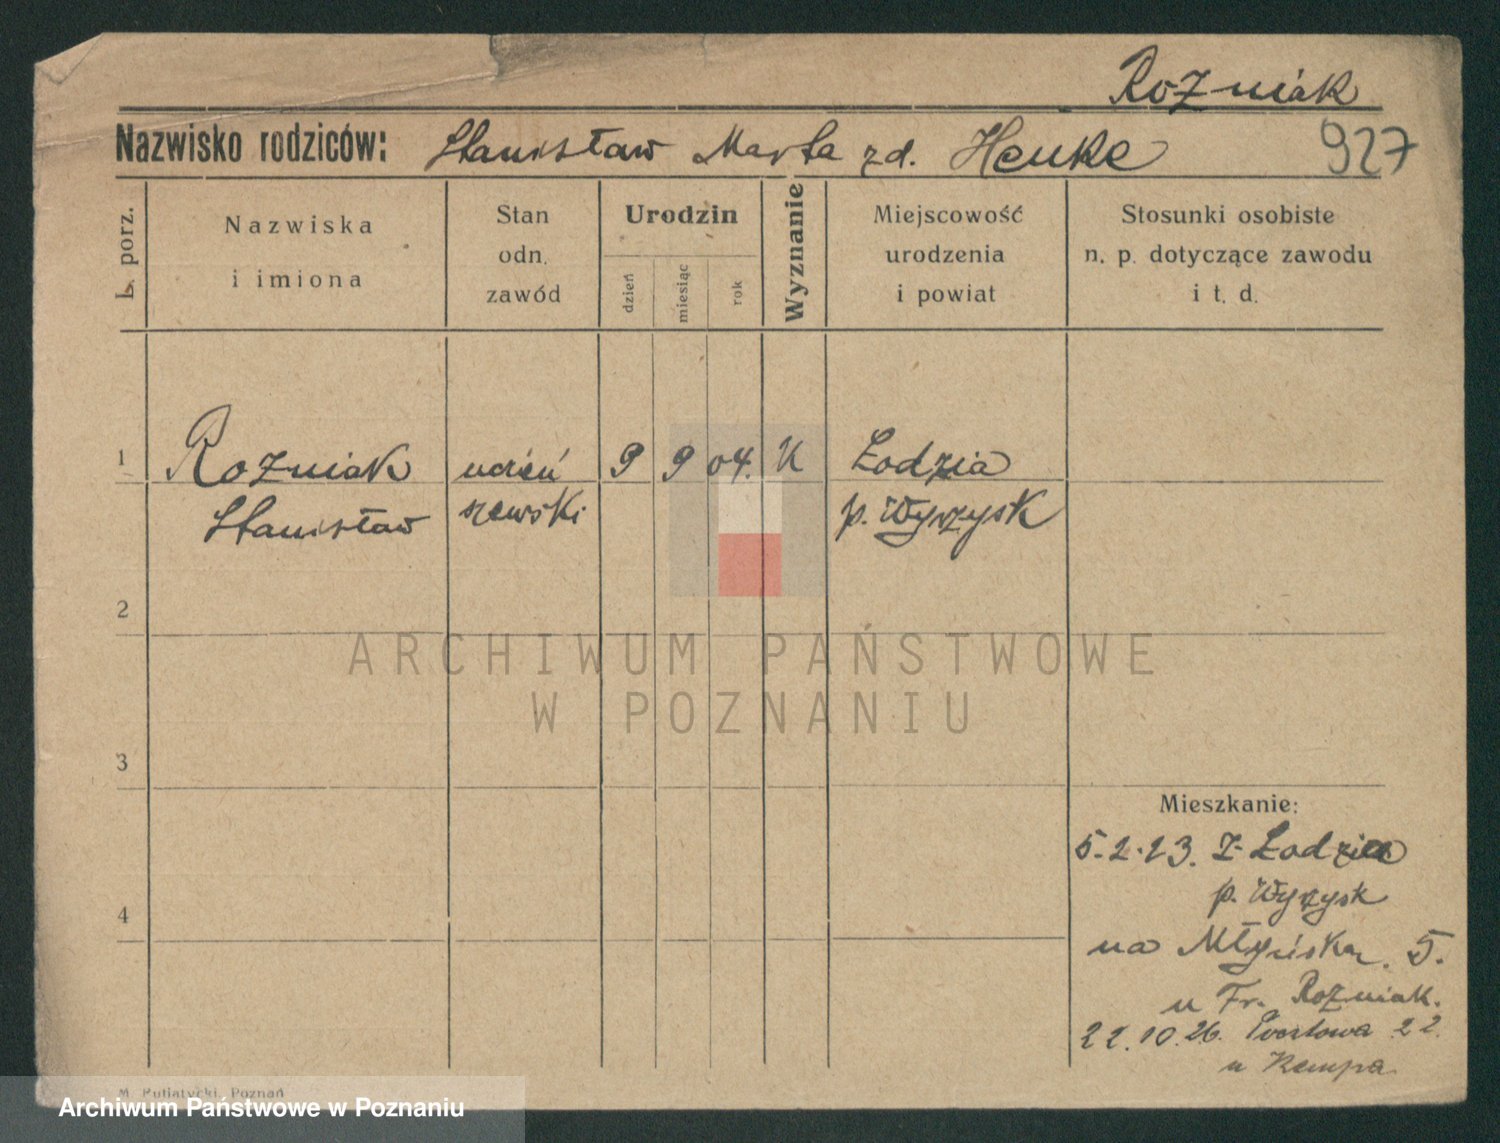 Rożniak
Nazwisko rodziców: Stanisław Marta zd. Henke 927
L. porz.
Nazwiska
i imiona
Stan
odn.
zawód
Urodzin
dzień
miesiąc
rok
Wyznanie
Miejscowość
urodzenia
i powiat
Stosunki osobiste
n. p. dotyczące zawodu
i t. d.
1 Rożniak uczeń 9 9 04. K Łodzia
Stanisław szewski p. Wyrzysk
2
ARCHIWUM PAŃSTWOWE
W POZNANIU
3
Mieszkanie:
5.2.23. z Łodzia
p. Wyrzysk
4
na Młyńska. 5.
u Fr. Rożniak.
22.10.26. Pocztowa 22.
u Kempa
M. Putiatycki, Poznań
Archiwum Państwowe w Poznaniu